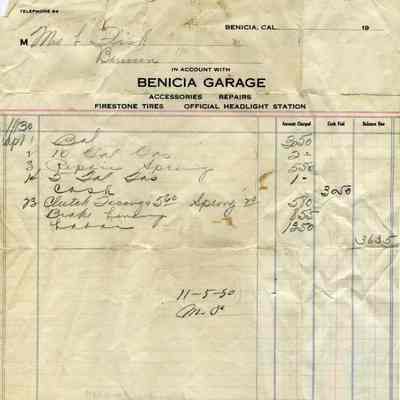 TELEPHONE 84
BENICIA, CAL. 19
M Mrs L Fish
Benicia
IN ACCOUNT WITH
BENICIA GARAGE
ACCESSORIES REPAIRS
FIRESTONE TIRES OFFICIAL HEADLIGHT STATION
Amount Charged Cash Paid Balance Due
1930
Apr 1 Bal
1 10 Gal Gas 2 -
3 Repair Spring 5 50
14 5 Gal Gas 1 -
Cash 30 50
23 Clutch Facings 5 60 Spring
Brake Lining 8 55
Labor 13 50
36 35
11-5-30